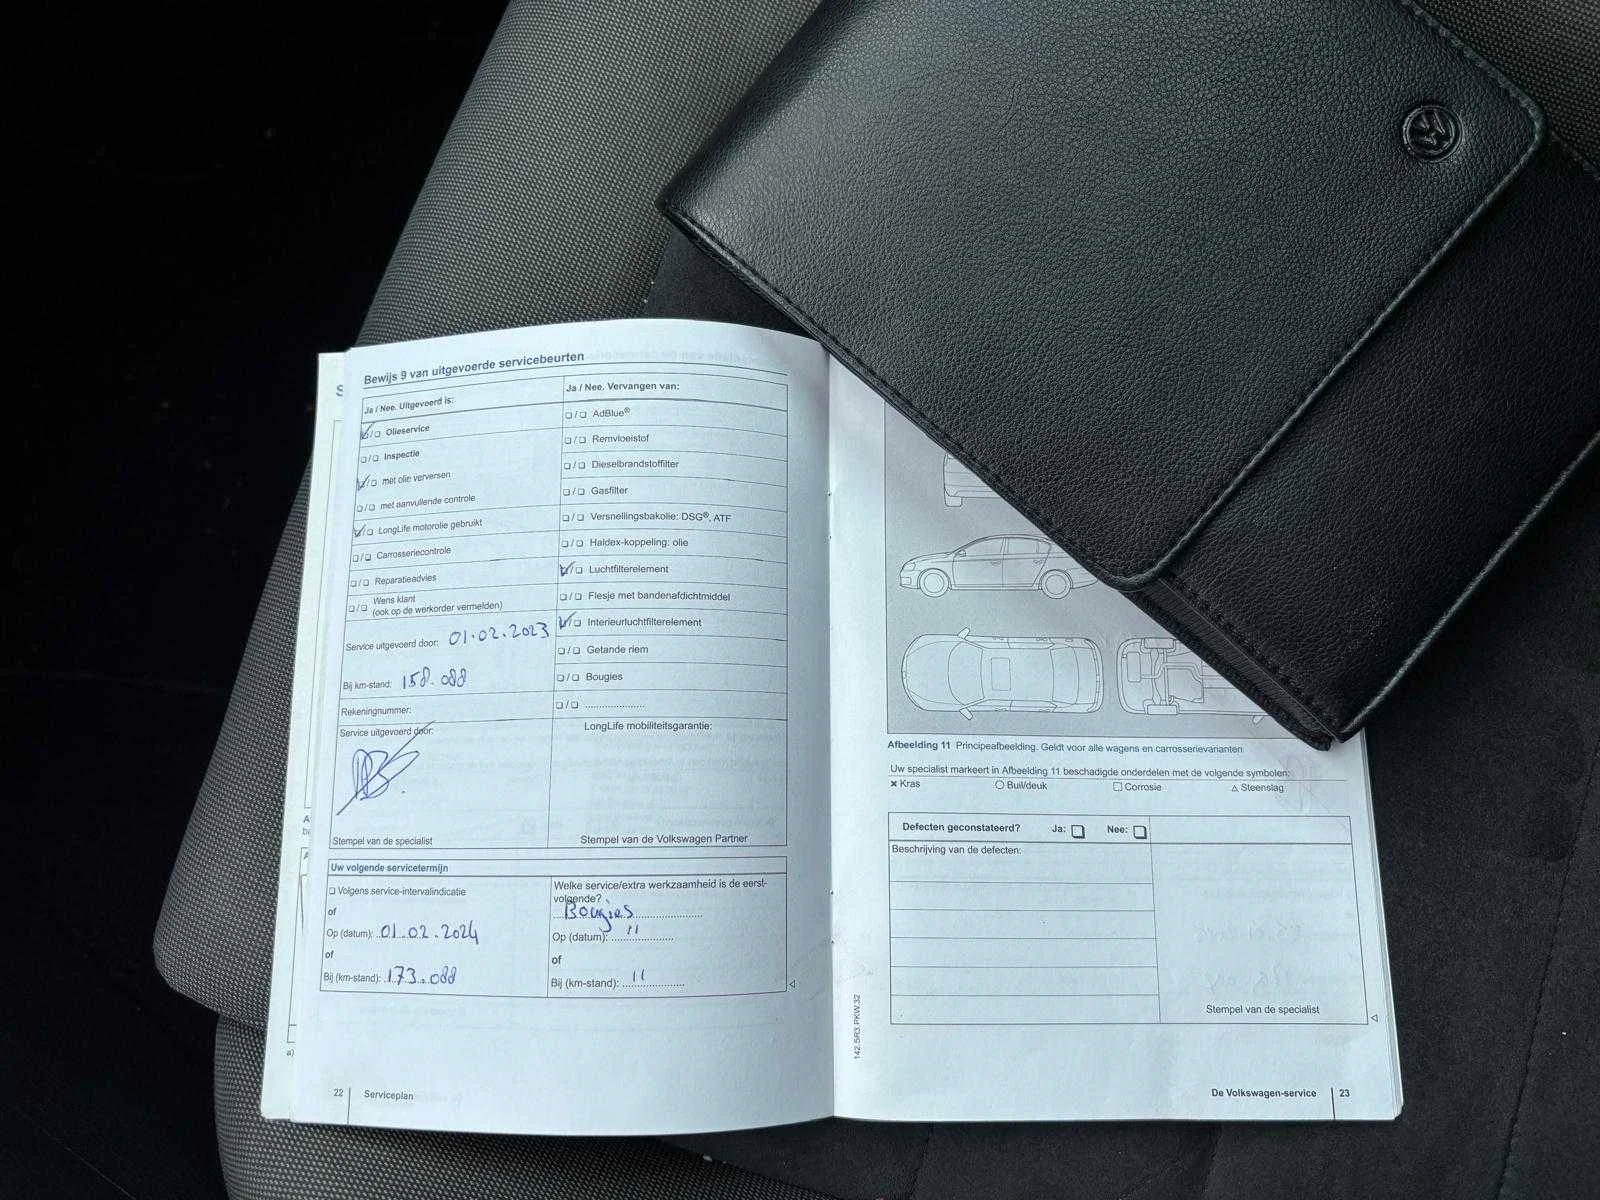 Bewijs 9 van uitgevoerde servicebeurten
Ja / Nee. Uitgevoerd is:
Olieservice
Inspectie
met olie verversen
met aanvullende controle
LongLife motorolie gebruikt
Carrosseriecontrole
Reparatieadvies
Wens klant
(ook op de werkorder vermelden)
Service uitgevoerd door: 01.02.2023
Bij km-stand: 158.088
Rekeningnummer:
Service uitgevoerd door:
Stempel van de specialist
Ja / Nee. Vervangen van:
AdBlue®
Remvloeistof
Dieselbrandstoffilter
Gasfilter
Versnellingsbakolie: DSG®, ATF
Haldex-koppeling: olie
Luchtfilterelement
Flesje met bandenafdichtmiddel
Interieurluchtfilterelement
Getande riem
Bougies
LongLife mobiliteitsgarantie:
Stempel van de Volkswagen Partner
Uw volgende servicetermijn
Volgens service-intervalindicatie
of
Op (datum): 01.02.2024
of
Bij (km-stand): 173.088
Welke service/extra werkzaamheid is de eerst-
volgende?
Bougies
Op (datum): "
of
Bij (km-stand): "
22 Serviceplan
a)
142.5R3.PKW.32
Afbeelding 11 Principeafbeelding. Geldt voor alle wagens en carrosserievarianten
Uw specialist markeert in Afbeelding 11 beschadigde onderdelen met de volgende symbolen:
Kras Buil/deuk Corrosie Steenslag
Defecten geconstateerd? Ja: Nee:
Beschrijving van de defecten:
Stempel van de specialist
De Volkswagen-service 23